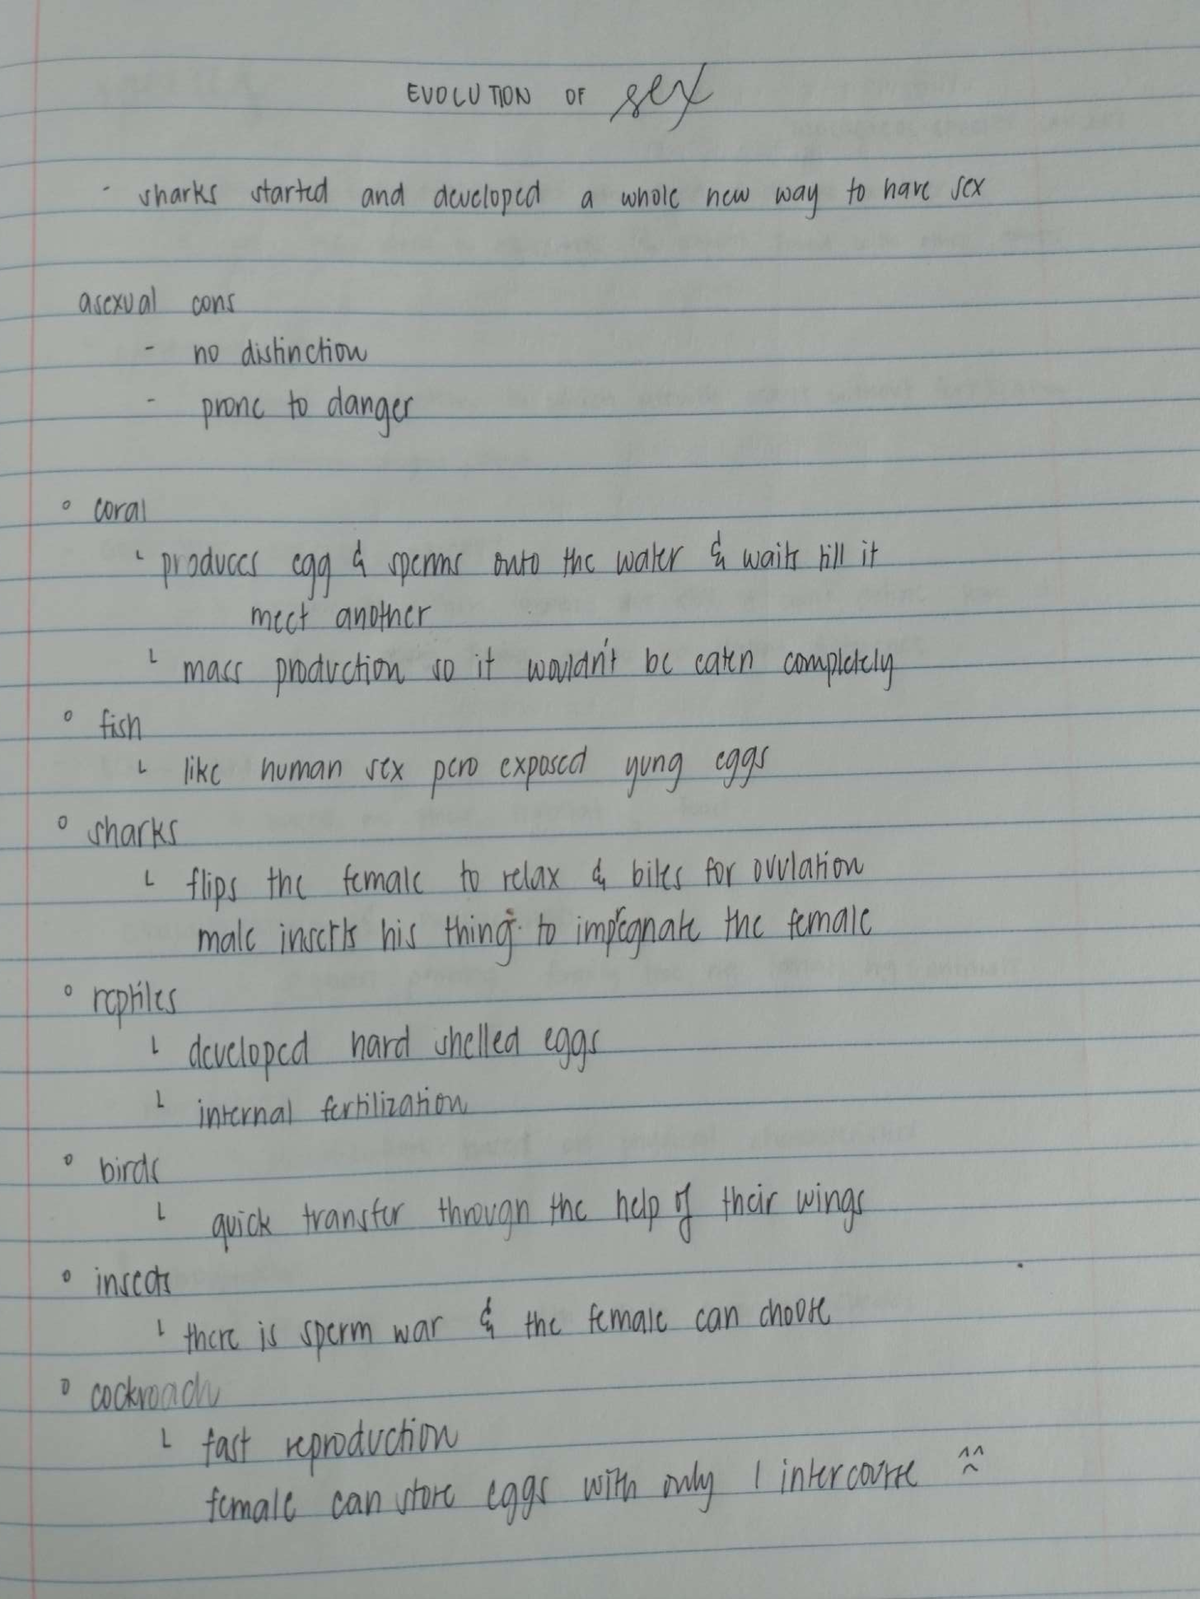 EVOLUTION OF sex
- sharks started and developed a whole new way to have sex
asexual cons
- no distinction
- prone to danger
° coral
└ produces egg & sperms onto the water & waits till it
meet another
└ mass production so it wouldn't be eaten completely
° fish
└ like human sex pero exposed yung eggs
° sharks
└ flips the female to relax & bites for ovulation
male inserts his thing to impregnate the female
° reptiles
└ developed hard shelled eggs
└ internal fertilization
° birds
└ quick transfer through the help of their wings
° insects
└ there is sperm war & the female can choose
° cockroach
└ fast reproduction
female can store eggs with only 1 intercourse ^^